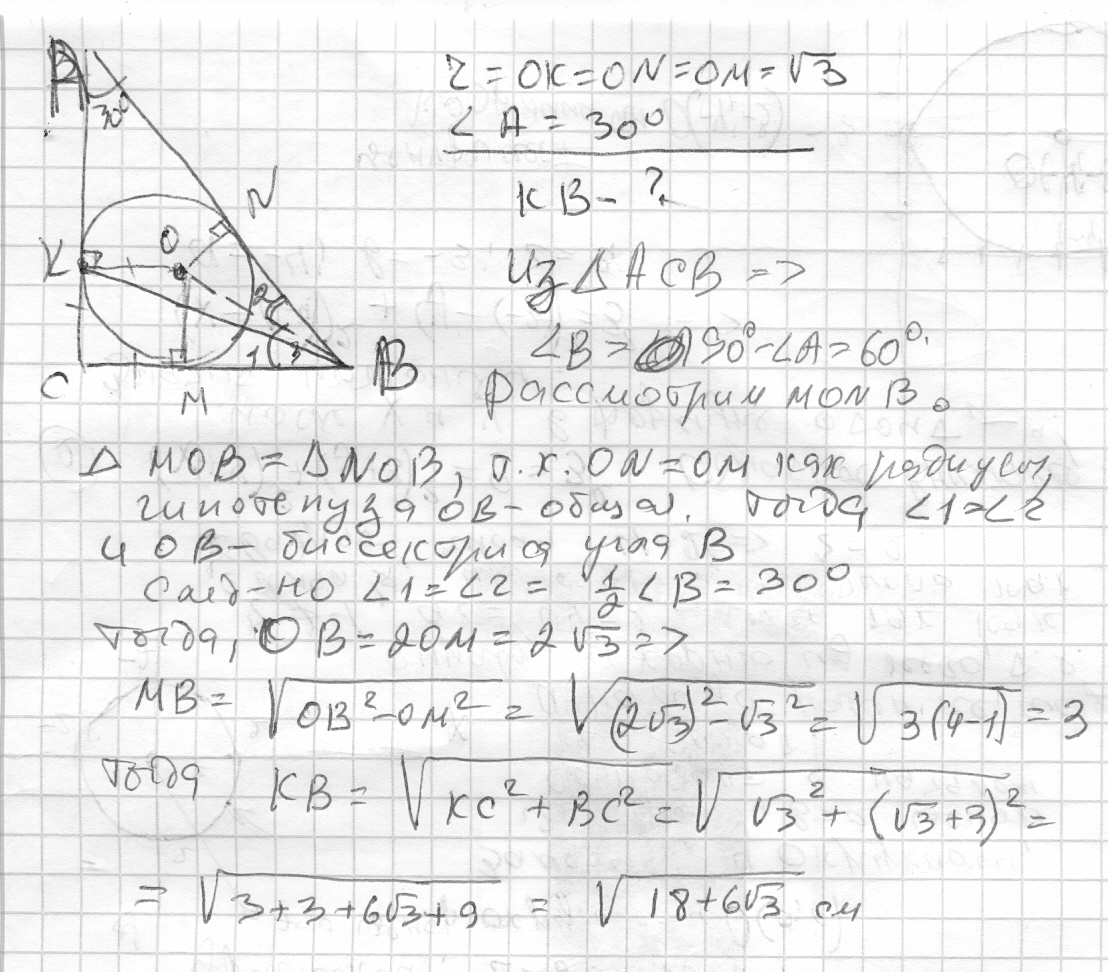 A
30°
N
K
O
2
1
3
C
M
B
r = OK = ON = OM = √3
∠ A = 30°
KB - ?
Из Δ ACB =>
∠B = 90° - ∠A = 60°.
Рассмотрим MONB.
Δ MOB = Δ NOB, т.к. ON = OM как радиусы,
гипотенуза OB - общая. Тогда, ∠1 = ∠2
и OB - биссектриса угла B
След-но ∠1 = ∠2 = 1/2 ∠B = 30°
Тогда, OB = 2OM = 2√3 =>
MB = √(OB² - OM²) = √((2√3)² - √3²) = √(3(4-1)) = 3
Тогда KB = √(KC² + BC²) = √(√3² + (√3+3)²) =
= √(3+3+6√3+9) = √(18+6√3) см